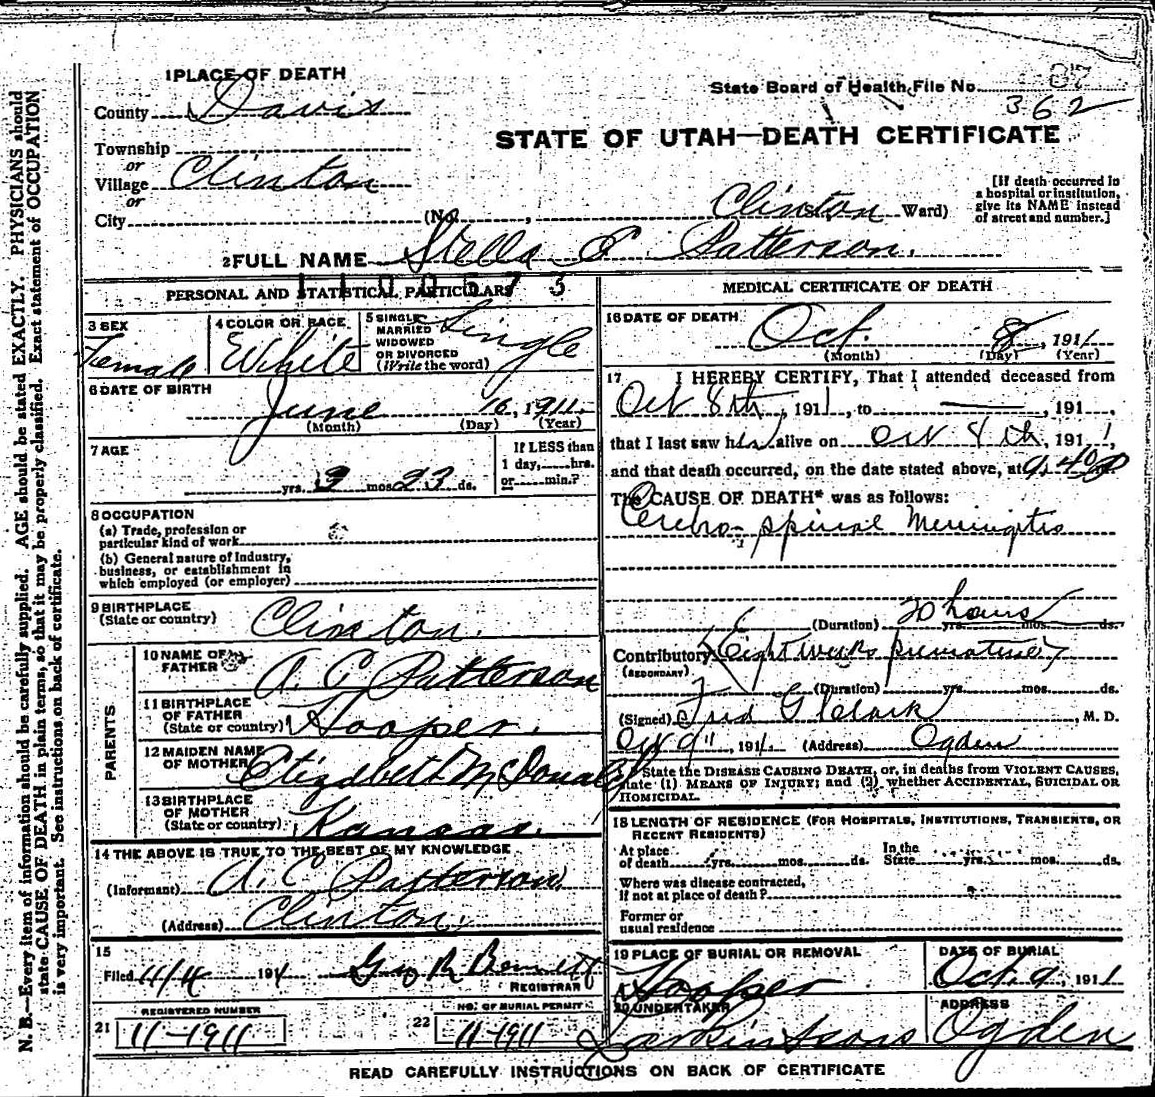 1 PLACE OF DEATH
County Davis
State Board of Health File No. 37
362
STATE OF UTAH—DEATH CERTIFICATE
Township
or
Village Clinton
or
City (No. , Clinton Ward)
[If death occurred in a hospital or institution, give its NAME instead of street and number.]
2 FULL NAME Stella E Patterson.
PERSONAL AND STATISTICAL PARTICULARS
3 SEX
Female
4 COLOR OR RACE
White
5 SINGLE
MARRIED
WIDOWED
OR DIVORCED
(Write the word)
Single
6 DATE OF BIRTH
June 16, 1911.
(Month) (Day) (Year)
7 AGE
yrs. 3 mos. 23 ds.
If LESS than
1 day, hrs.
or min.?
8 OCCUPATION
(a) Trade, profession or
particular kind of work
(b) General nature of Industry,
business, or establishment in
which employed (or employer)
9 BIRTHPLACE
(State or country) Clinton.
PARENTS
10 NAME OF
FATHER A. C. Patterson
11 BIRTHPLACE
OF FATHER
(State or country) Hooper.
12 MAIDEN NAME
OF MOTHER Elizabeth McDonald
13 BIRTHPLACE
OF MOTHER
(State or country) Kansas.
14 THE ABOVE IS TRUE TO THE BEST OF MY KNOWLEDGE
(Informant) A. C. Patterson
(Address) Clinton.
15
Filed 11/4 1911 Geo R Bennett
REGISTRAR
REGISTERED NUMBER
21 11-1911
NO. OF BURIAL PERMIT
22 11-1911
MEDICAL CERTIFICATE OF DEATH
16 DATE OF DEATH
Oct. 8, 1911
(Month) (Day) (Year)
17 I HEREBY CERTIFY, That I attended deceased from
Oct 8th, 1911, to , 191 ,
that I last saw her alive on Oct 8th, 1911,
and that death occurred, on the date stated above, at 9.40 p
The CAUSE OF DEATH* was as follows:
Cerebro-spinal Meningitis
20 hours
(Duration) yrs. mos. ds.
Contributory Eight weeks premature
(SECONDARY)
(Duration) yrs. mos. ds.
(Signed) Fred G Clark, M. D.
Oct 9", 1911 (Address) Ogden
State the DISEASE CAUSING DEATH, or, in deaths from VIOLENT CAUSES,
state (1) MEANS OF INJURY; and (2) whether ACCIDENTAL, SUICIDAL OR
HOMICIDAL.
18 LENGTH OF RESIDENCE (FOR HOSPITALS, INSTITUTIONS, TRANSIENTS, OR
RECENT RESIDENTS)
At place
of death yrs. mos. ds.
In the
State yrs. mos. ds.
Where was disease contracted,
if not at place of death?
Former or
usual residence
19 PLACE OF BURIAL OR REMOVAL
Hooper
DATE OF BURIAL
Oct. 9, 1911
20 UNDERTAKER
Larkin & sons
ADDRESS
Ogden
READ CAREFULLY INSTRUCTIONS ON BACK OF CERTIFICATE
N. B.—Every item of information should be carefully supplied. AGE should be stated EXACTLY. PHYSICIANS should
state CAUSE OF DEATH in plain terms, so that it may be properly classified. Exact statement of OCCUPATION
is very important. See instructions on back of certificate.